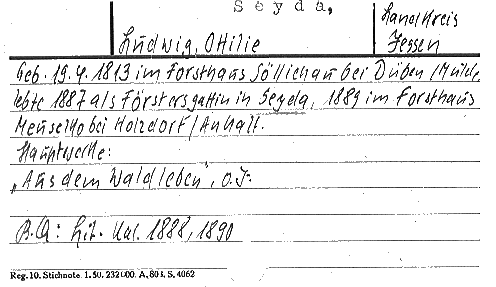 Seyda,
Landkreis
Ludwig, Ottilie
Jessen
Geb. 19.4.1813 im Forsthaus Söllichau bei Düben/Mulde,
lebte 1887 als Förstersgattin in Seyda, 1889 im Forsthaus
Meuselko bei Holzdorf/Anhalt.
Hauptwerke:
„Aus dem Waldleben", o.J.
B.Qu: Lit. Kal. 1888, 1890
Reg. 10. Stichnote. 1. 50. 232000. A, 803. S. 4062